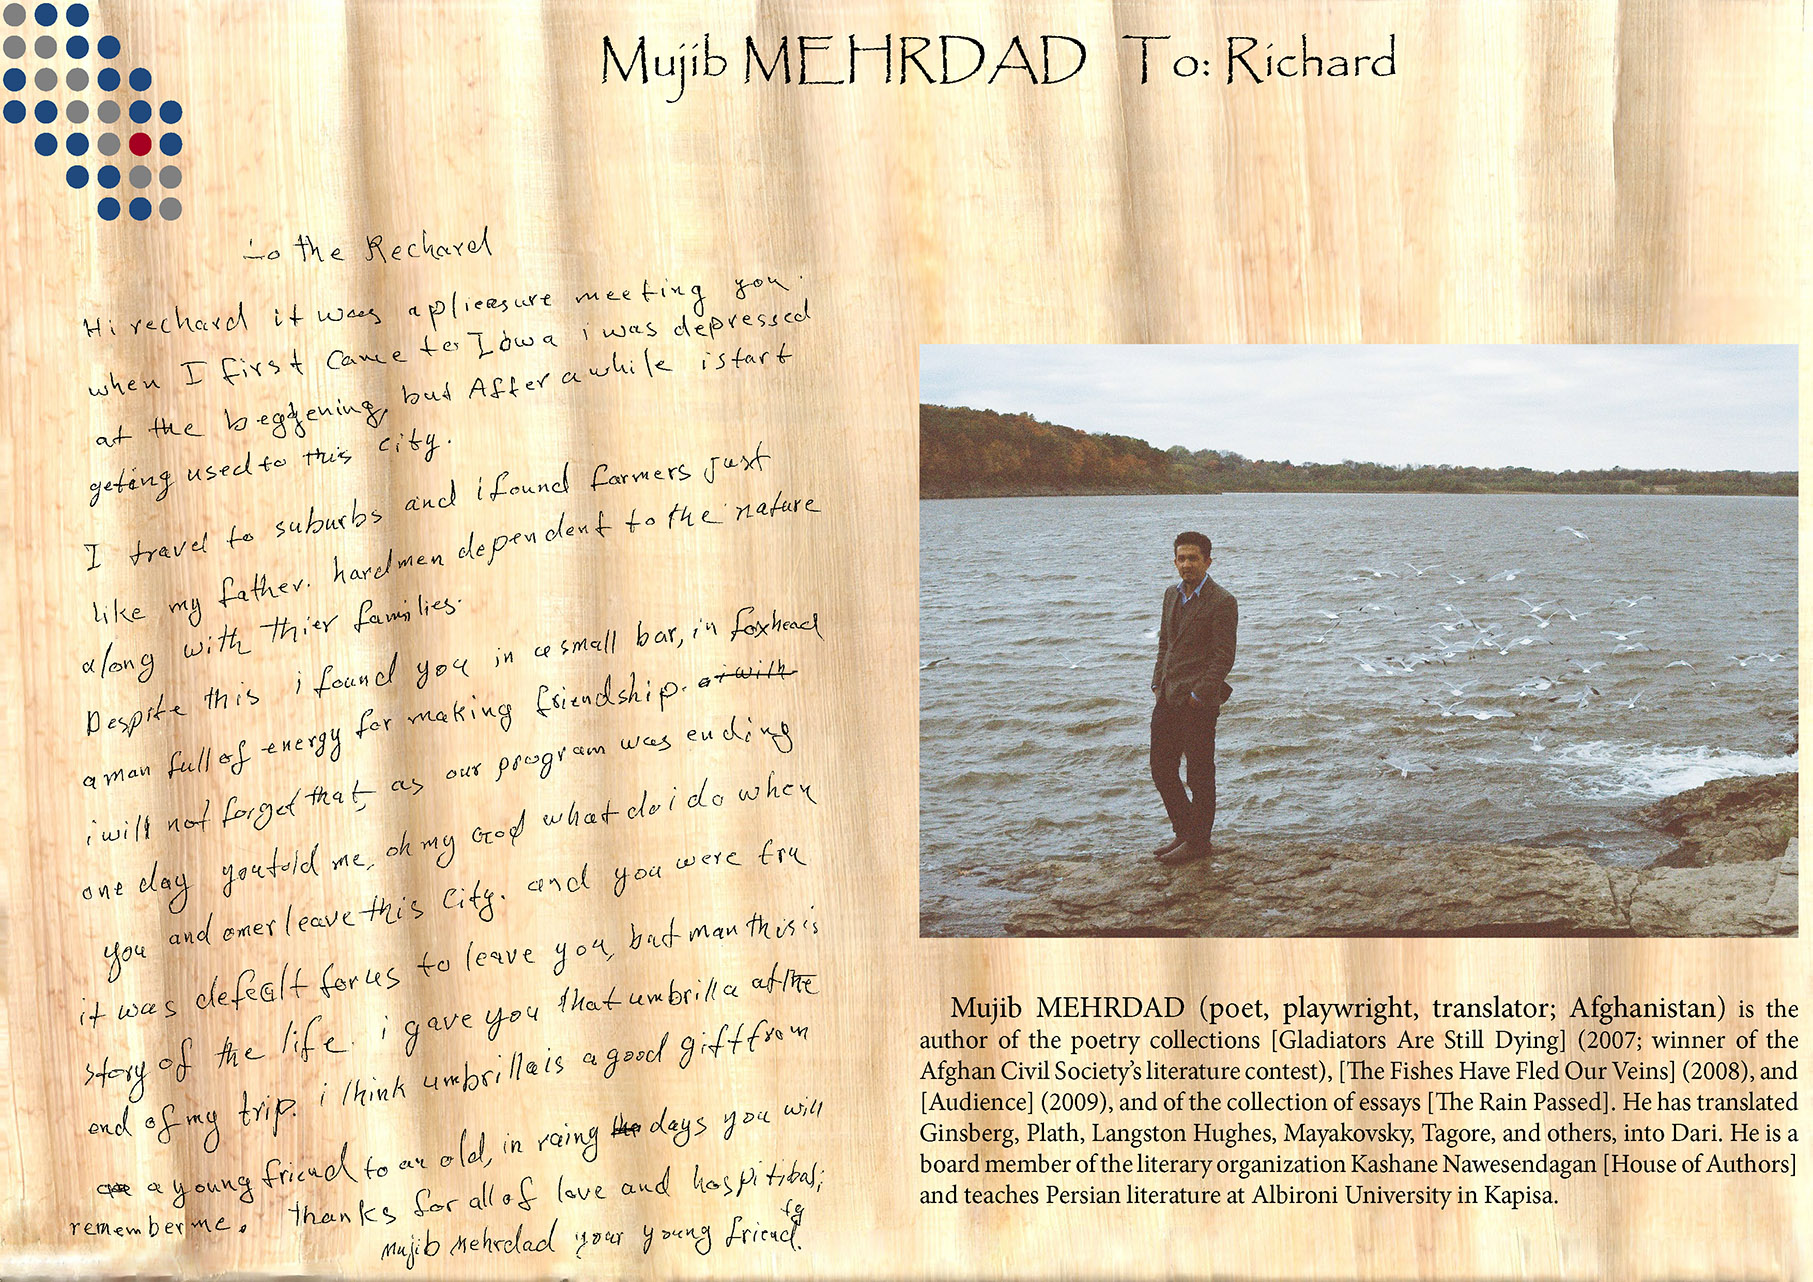 Mujib MEHRDAD To: Richard
to the Rechard
Hi rechard it was a plieasure meeting you.
when I first came to Iowa i was depressed
at the beggening, but After a while i start
geting used to this city.
I travel to suburbs and i found farmers just
like my father. hard men dependent to the nature
along with thier families.
Despite this i found you in a small bar, in foxhead
a man full of energy for making friendship.
i will not forget that, as our program was ending
one day you told me, oh my God what do i do when
you and omer leave this city. and you were
it was for us to leave you, but man this is
story of the life. i gave you that umbrilla at the
end of my trip. i think umbrilla is a good gift from
a young friend to an old, in raing days you will
remember me. thanks for all of love and hospitibali
ty
Mujib Mehrdad your young friend.
Mujib MEHRDAD (poet, playwright, translator; Afghanistan) is the
author of the poetry collections [Gladiators Are Still Dying] (2007; winner of the
Afghan Civil Society's literature contest), [The Fishes Have Fled Our Veins] (2008), and
[Audience] (2009), and of the collection of essays [The Rain Passed]. He has translated
Ginsberg, Plath, Langston Hughes, Mayakovsky, Tagore, and others, into Dari. He is a
board member of the literary organization Kashane Nawesendagan [House of Authors]
and teaches Persian literature at Albironi University in Kapisa.